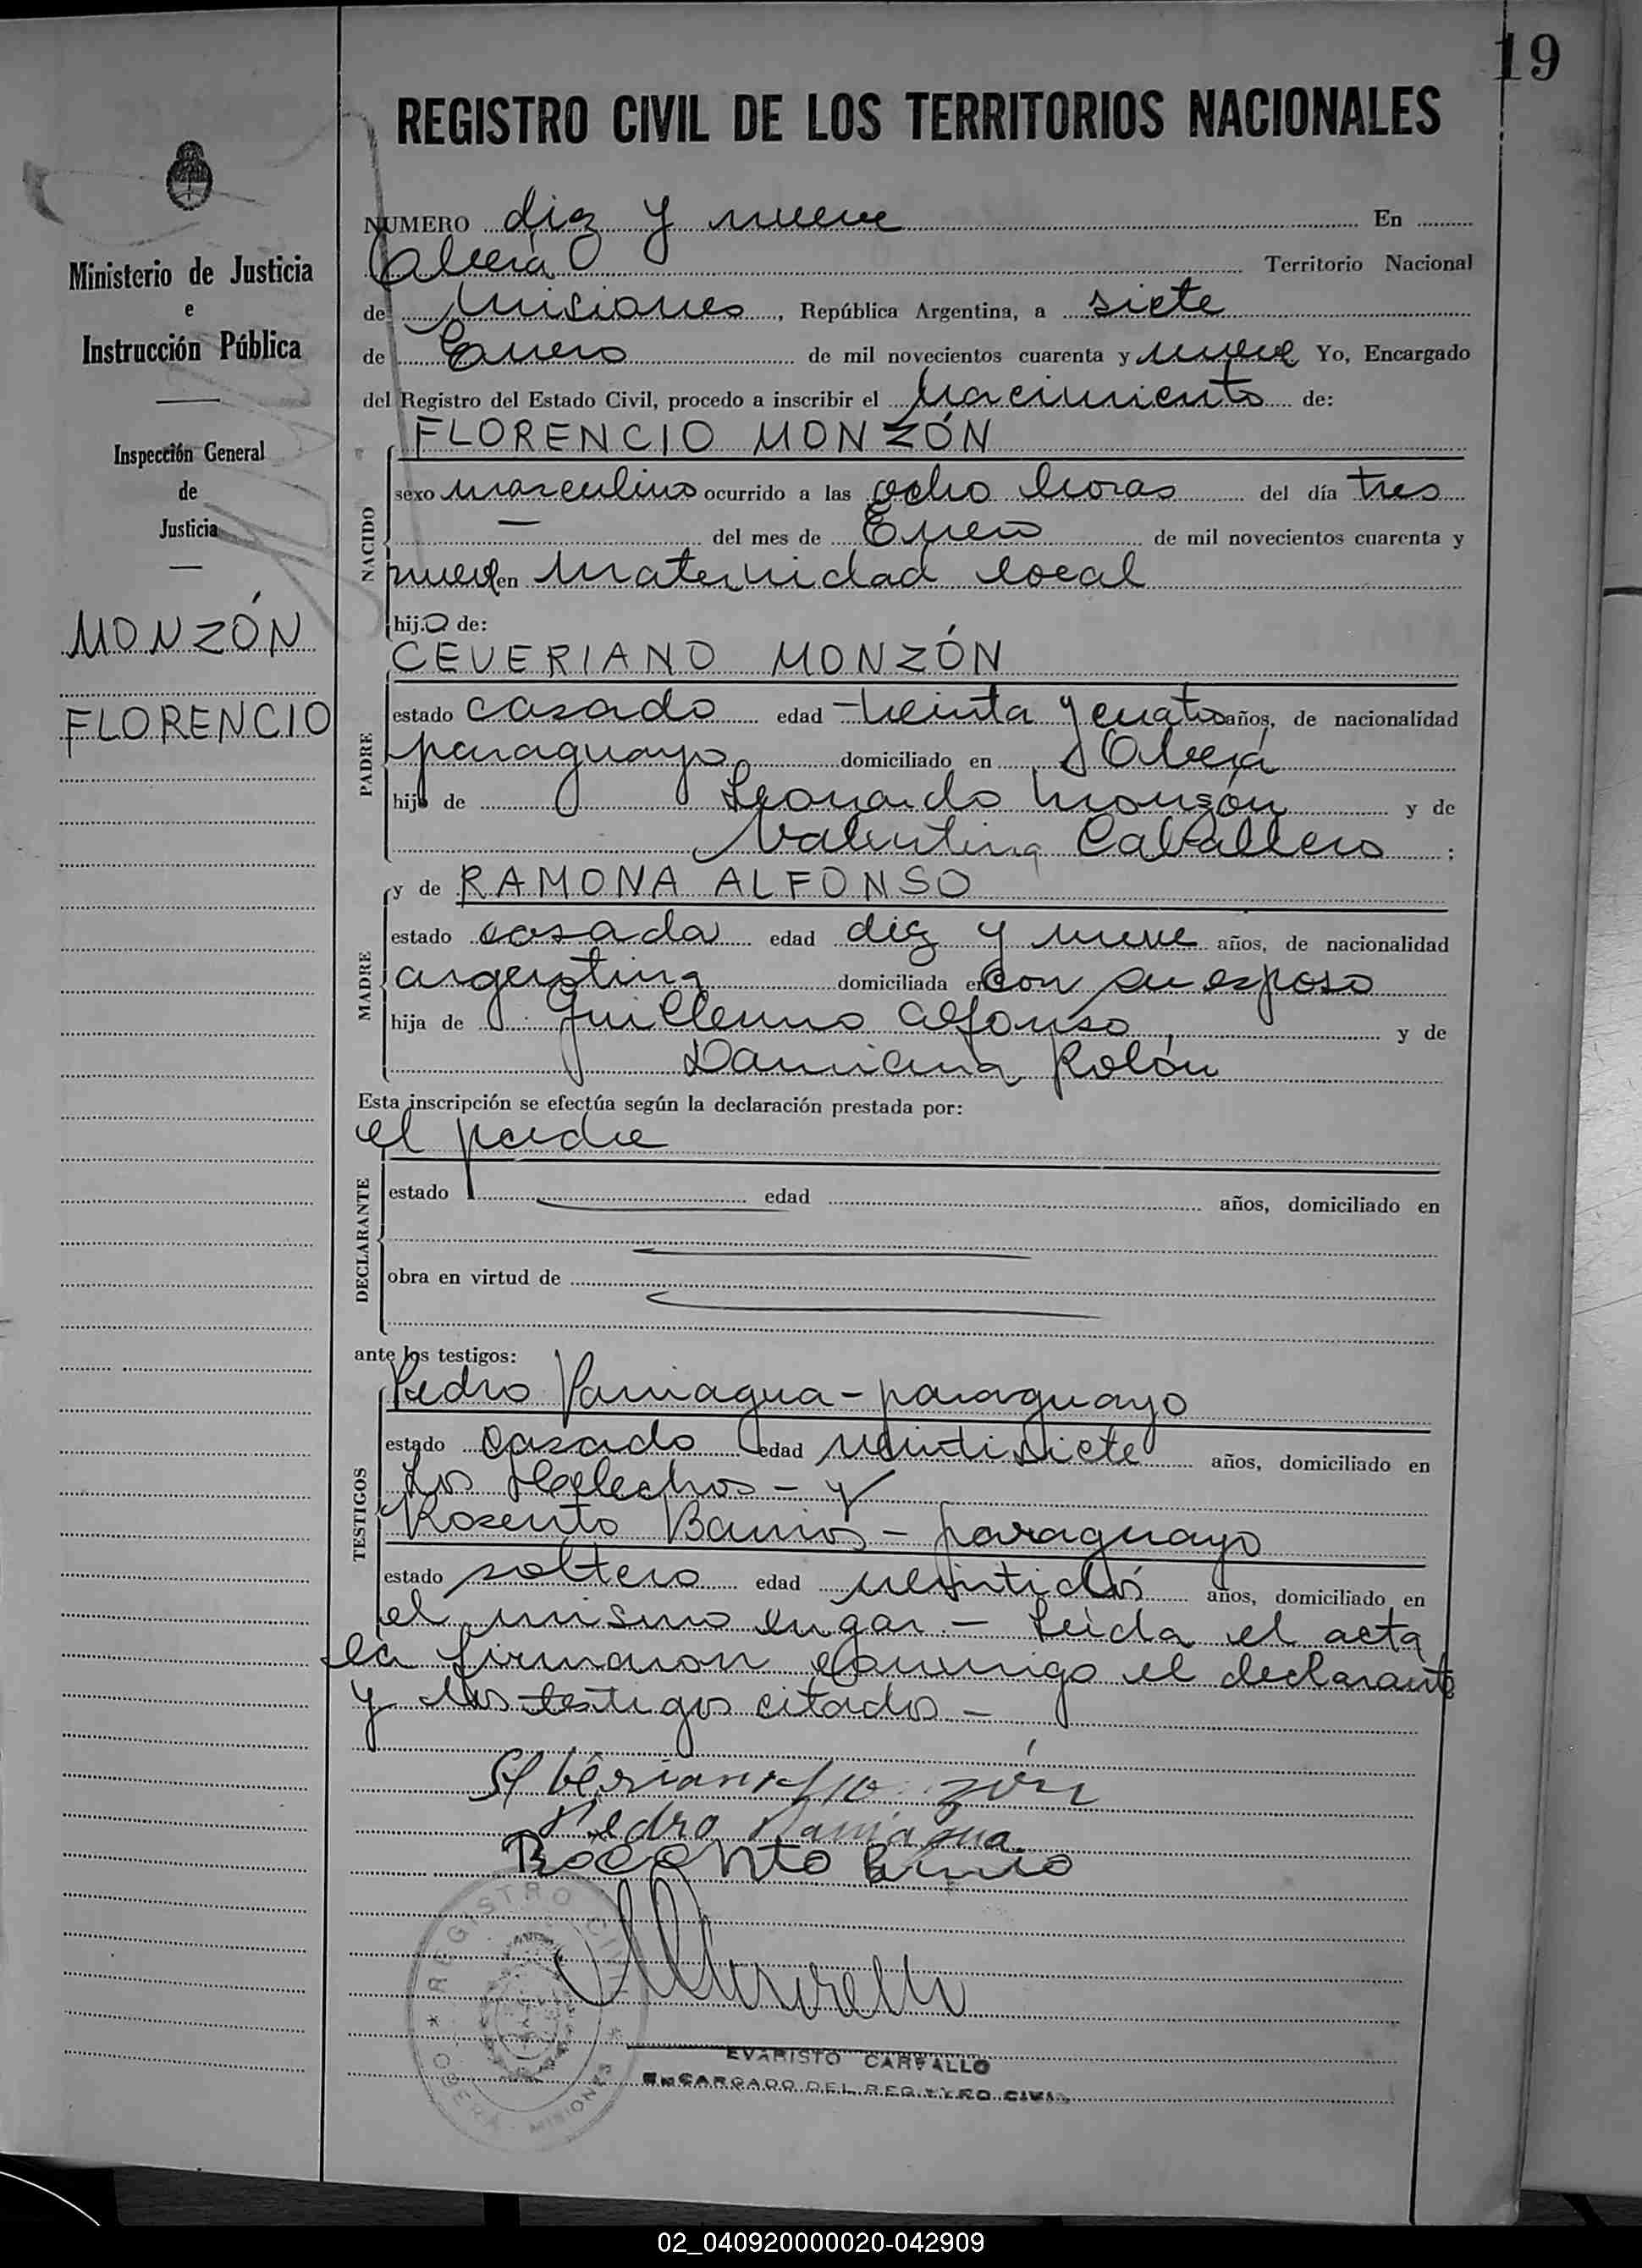 19
REGISTRO CIVIL DE LOS TERRITORIOS NACIONALES
Ministerio de Justicia
e
Instrucción Pública
Inspección General
de
Justicia
MONZÓN
FLORENCIO
NUMERO diez y nueve En
Oberá Territorio Nacional
de Misiones, República Argentina, a siete
de Enero de mil novecientos cuarenta y nueve Yo, Encargado
del Registro del Estado Civil, procedo a inscribir el Nacimiento de:
FLORENCIO MONZÓN
NACIDO
sexo masculino ocurrido a las ocho horas del día tres
— del mes de Enero de mil novecientos cuarenta y
nueve en Maternidad local
hijo de:
CEVERIANO MONZÓN
PADRE
estado casado edad treinta y cuatro años, de nacionalidad
paraguayo domiciliado en Oberá
hijo de Leonardo Monzón y de
Valentina Caballero ;
MADRE
y de RAMONA ALFONSO
estado casada edad diez y nueve años, de nacionalidad
argentina domiciliada en con su esposo
hija de Guillermo Alfonso y de
Damiana Rolón
Esta inscripción se efectúa según la declaración prestada por:
el padre
DECLARANTE
estado edad años, domiciliado en
obra en virtud de
ante los testigos:
TESTIGOS
Pedro Paniagua - paraguayo
estado casado edad veintisiete años, domiciliado en
Los Helechos - y
Rosento Barrios - paraguayo
estado soltero edad veintidós años, domiciliado en
el mismo lugar. - Leída el acta
la firmaron conmigo el declarante
y los testigos citados -
Monzón
Pedro Paniagua
REGISTRO CIVIL
OBERÁ - MISIONES
EVARISTO CARVALLO
ENCARGADO DEL REGISTRO CIVIL
02_040920000020-042909